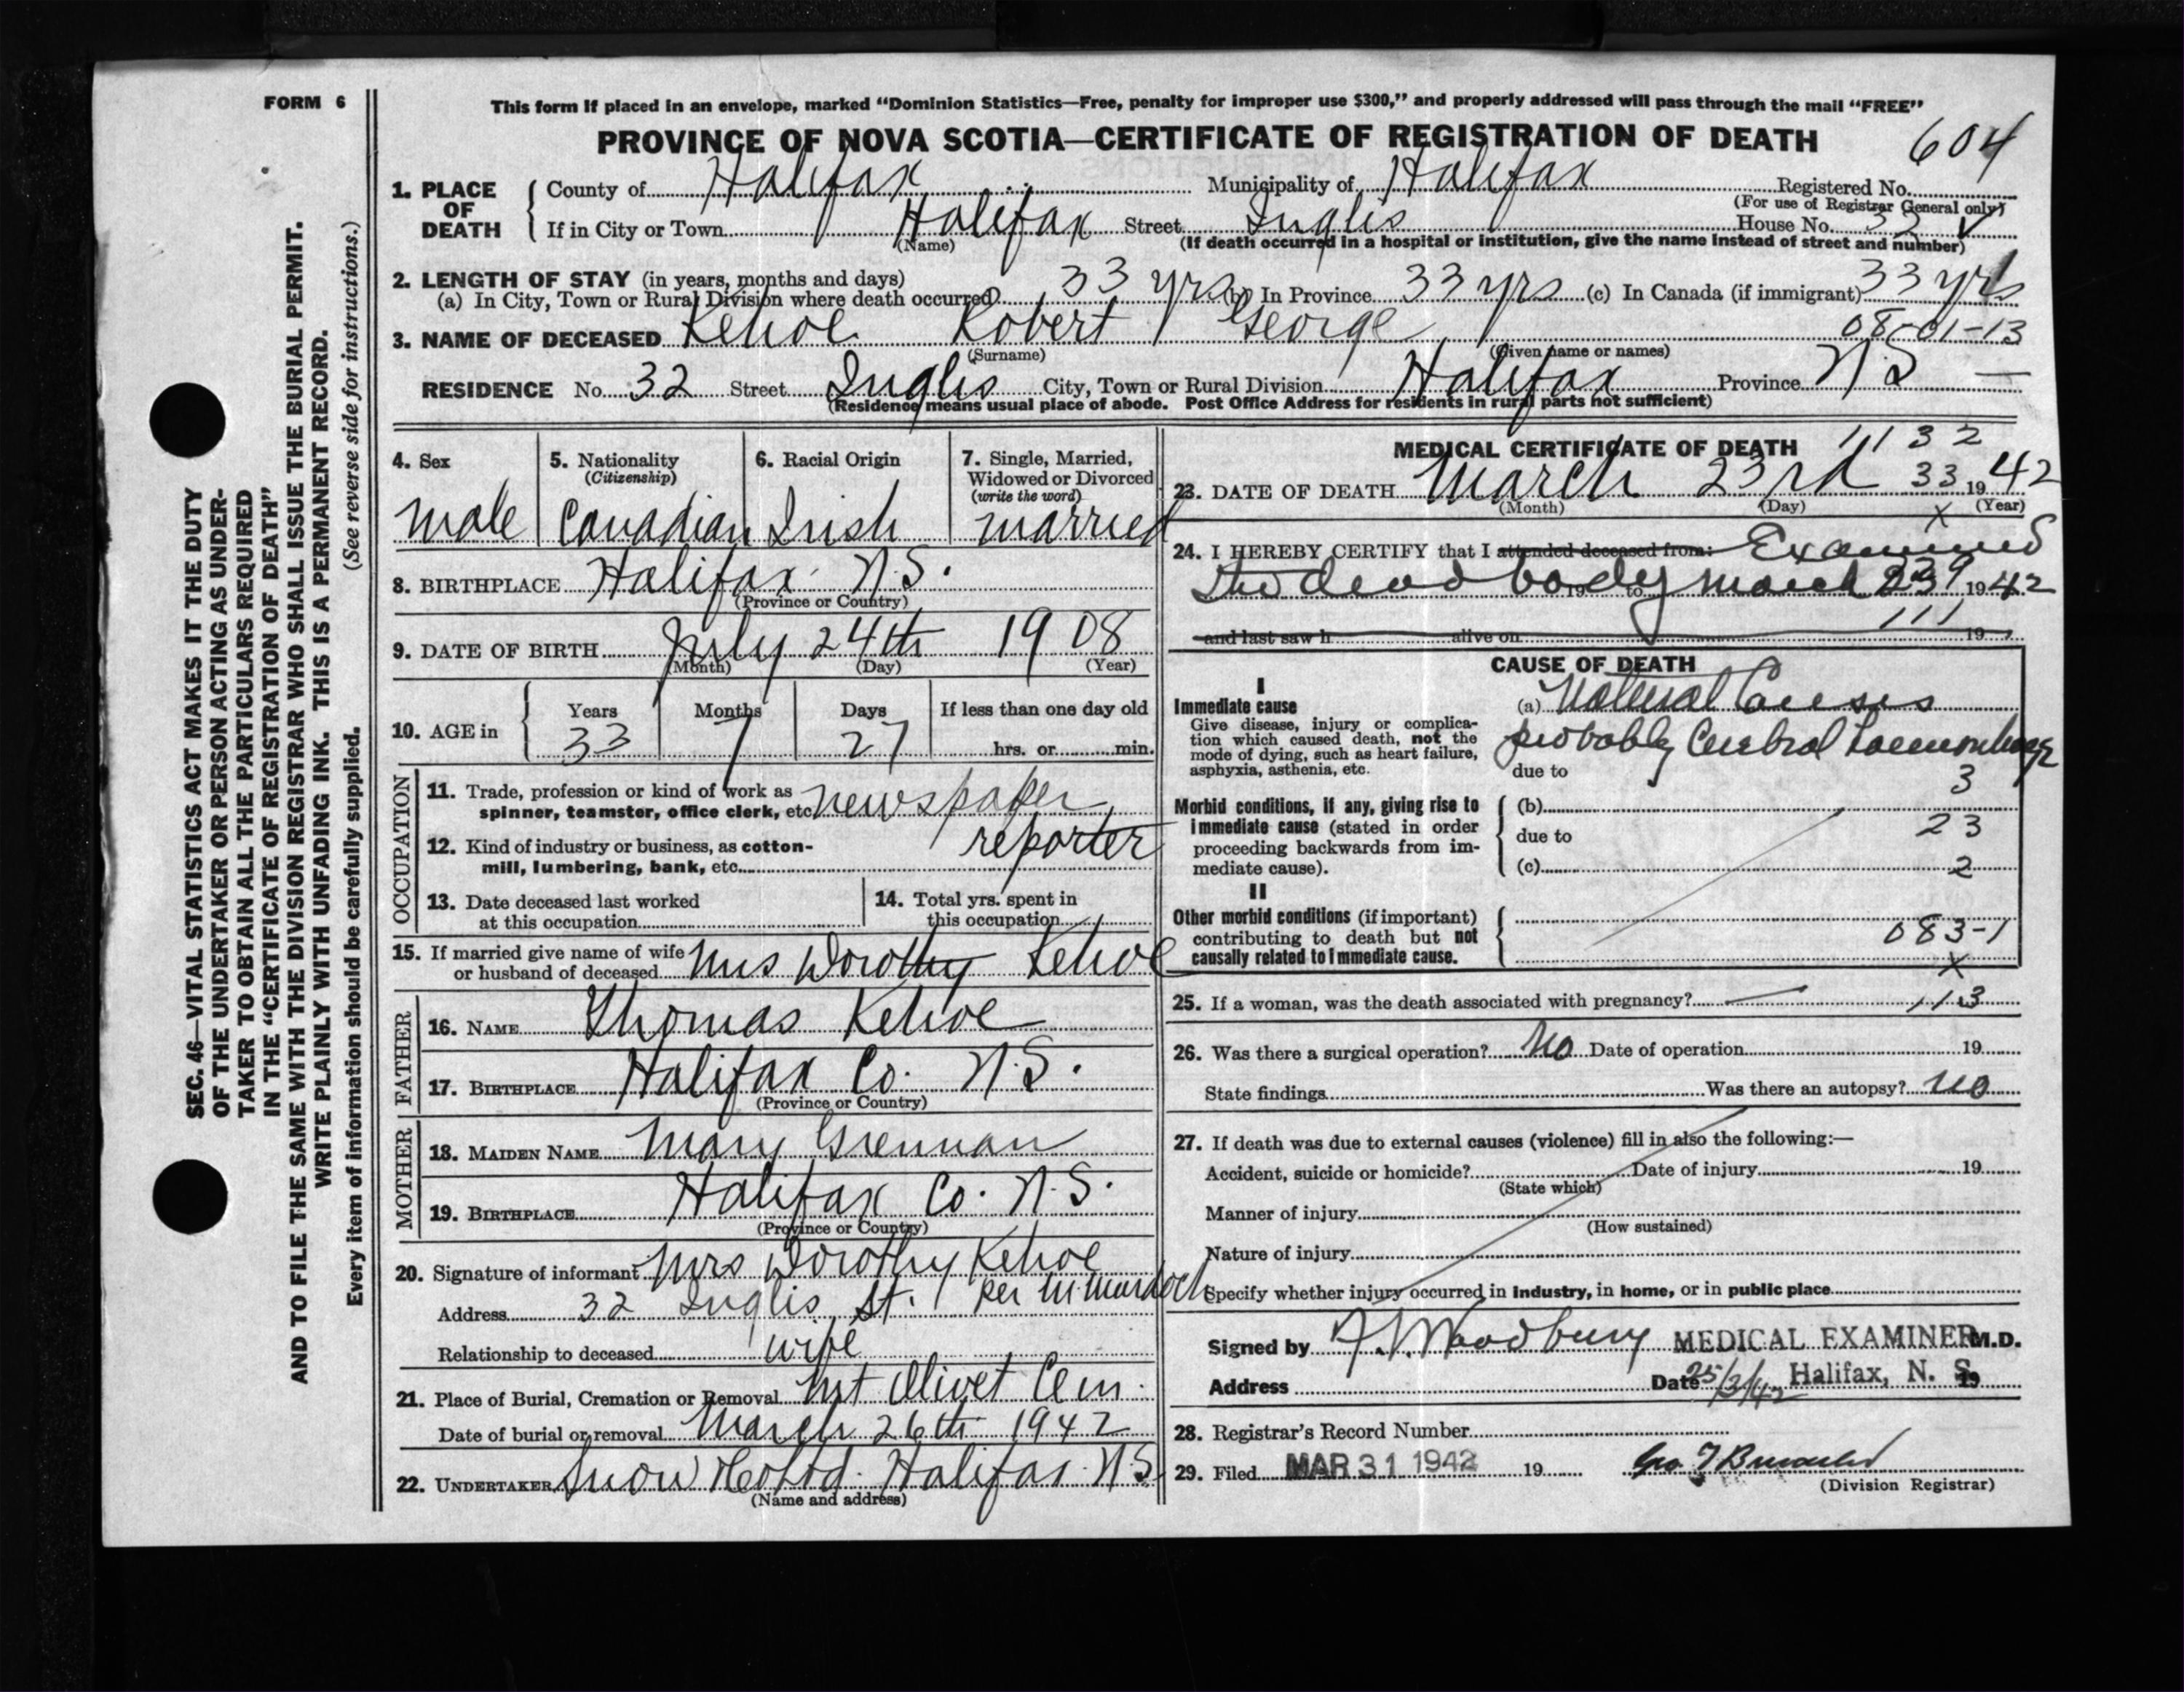 FORM 6
This form if placed in an envelope, marked “Dominion Statistics—Free, penalty for improper use $300,” and properly addressed will pass through the mail “FREE”
PROVINCE OF NOVA SCOTIA—CERTIFICATE OF REGISTRATION OF DEATH
604
1. PLACE OF DEATH
County of Halifax Municipality of Halifax Registered No.
(For use of Registrar General only)
If in City or Town Halifax Street Inglis House No. 32
(Name) (If death occurred in a hospital or institution, give the name instead of street and number)
2. LENGTH OF STAY (in years, months and days)
(a) In City, Town or Rural Division where death occurred 33 yrs (b) In Province 33 yrs (c) In Canada (if immigrant) 33 yrs
3. NAME OF DECEASED Kehoe Robert George 08-01-13
(Surname) (Given name or names)
RESIDENCE No. 32 Street Inglis City, Town or Rural Division Halifax Province N S —
(Residence means usual place of abode. Post Office Address for residents in rural parts not sufficient)
4. Sex
male
5. Nationality
(Citizenship)
Canadian
6. Racial Origin
Irish
7. Single, Married, Widowed or Divorced
(write the word)
married
8. BIRTHPLACE Halifax N.S.
(Province or Country)
9. DATE OF BIRTH July 24th 1908
(Month) (Day) (Year)
10. AGE in
Years Months Days If less than one day old
33 7 27 hrs. or min.
OCCUPATION
11. Trade, profession or kind of work as newspaper
spinner, teamster, office clerk, etc.
reporter
12. Kind of industry or business, as cotton-
mill, lumbering, bank, etc.
13. Date deceased last worked
at this occupation
14. Total yrs. spent in
this occupation
15. If married give name of wife
or husband of deceased Mrs Dorothy Kehoe
FATHER
16. NAME Thomas Kehoe
17. BIRTHPLACE Halifax Co. N.S.
(Province or Country)
MOTHER
18. MAIDEN NAME Mary Grennan
19. BIRTHPLACE Halifax Co. N.S.
(Province or Country)
20. Signature of informant Mrs Dorothy Kehoe
per M. Murdoch
Address 32 Inglis St.
Relationship to deceased wife
21. Place of Burial, Cremation or Removal Mt Olivet Cem.
Date of burial or removal March 26th 1942
22. UNDERTAKER Snow Co Ltd. Halifax N.S.
(Name and address)
MEDICAL CERTIFICATE OF DEATH
1132
23. DATE OF DEATH March 23rd 33 1942
(Month) (Day) (Year)
x
24. I HEREBY CERTIFY that I attended deceased from: Examined
the dead body 19 to March 23 1942
111
and last saw h alive on 19
CAUSE OF DEATH
I
Immediate cause
Give disease, injury or complica-
tion which caused death, not the
mode of dying, such as heart failure,
asphyxia, asthenia, etc.
(a) Natural Causes
probably Cerebral Haemorrhage
due to
3
Morbid conditions, if any, giving rise to
immediate cause (stated in order
proceeding backwards from im-
mediate cause).
(b)
due to 23
(c) 2
II
Other morbid conditions (if important)
contributing to death but not
causally related to immediate cause.
083-1
x
25. If a woman, was the death associated with pregnancy? — 113
26. Was there a surgical operation? No Date of operation 19
State findings Was there an autopsy? No
27. If death was due to external causes (violence) fill in also the following:—
Accident, suicide or homicide? Date of injury 19
(State which)
Manner of injury
(How sustained)
Nature of injury
Specify whether injury occurred in industry, in home, or in public place
Signed by Woodbury MEDICAL EXAMINER M.D.
Address Date 25/3/42 Halifax, N. S. 19
28. Registrar’s Record Number
29. Filed MAR 31 1942 19
(Division Registrar)
SEC. 46—VITAL STATISTICS ACT MAKES IT THE DUTY
OF THE UNDERTAKER OR PERSON ACTING AS UNDER-
TAKER TO OBTAIN ALL THE PARTICULARS REQUIRED
IN THE “CERTIFICATE OF REGISTRATION OF DEATH”
AND TO FILE THE SAME WITH THE DIVISION REGISTRAR WHO SHALL ISSUE THE BURIAL PERMIT.
WRITE PLAINLY WITH UNFADING INK. THIS IS A PERMANENT RECORD.
Every item of information should be carefully supplied. (See reverse side for instructions.)